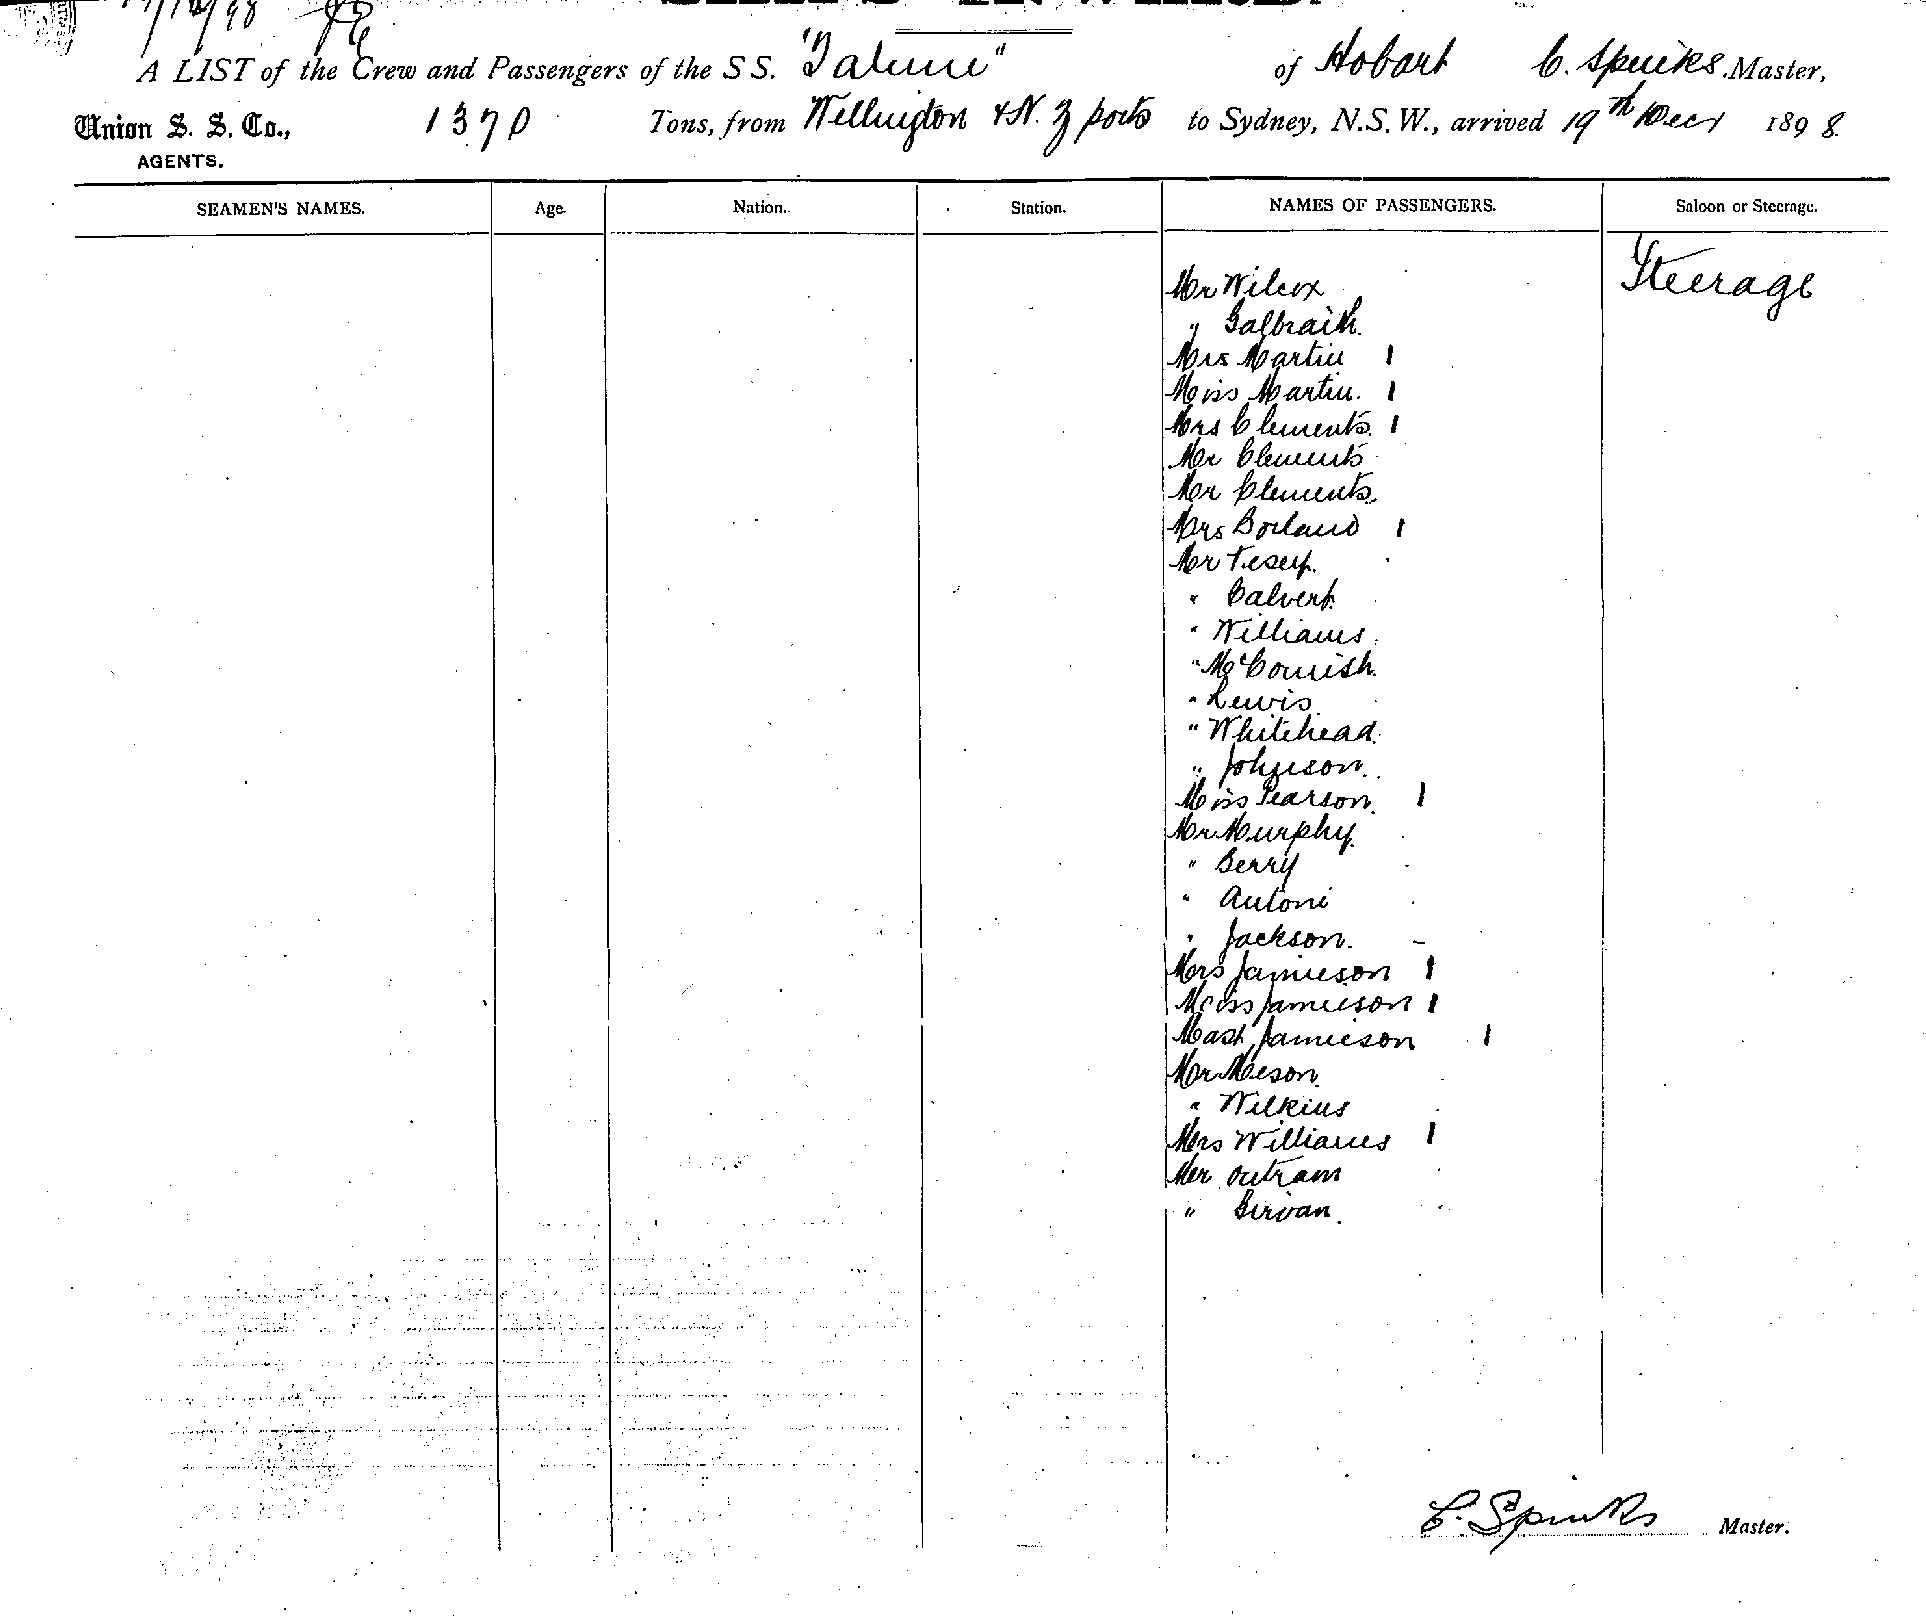 A LIST of the Crew and Passengers of the S S. "Talune" of Hobart C. Spinks. Master,
Union S. S. Co., 1370 Tons, from Wellington & N. Z ports to Sydney, N.S.W., arrived 19th Decr 1898.
AGENTS.
SEAMEN'S NAMES. Age. Nation. Station. NAMES OF PASSENGERS. Saloon or Steerage.
Mr Wilcox Steerage
" Galbraith.
Mrs Martin 1
Miss Martin. 1
Mrs Clements. 1
Mr Clements
Mr Clements.
Mrs Borland 1
Mr
" Calvert.
" Williams.
" McComish.
" Lewis.
" Whitehead.
" Johnson.
Miss Pearson. 1
Mr Murphy.
" Berry
" Antoni
" Jackson. -
Mrs Jamieson 1
Miss Jamieson 1
Mast Jamieson 1
Mr Meson.
" Wilkins
Mrs Williams 1
Mr Outram
" Girvan.
C. Spinks Master.